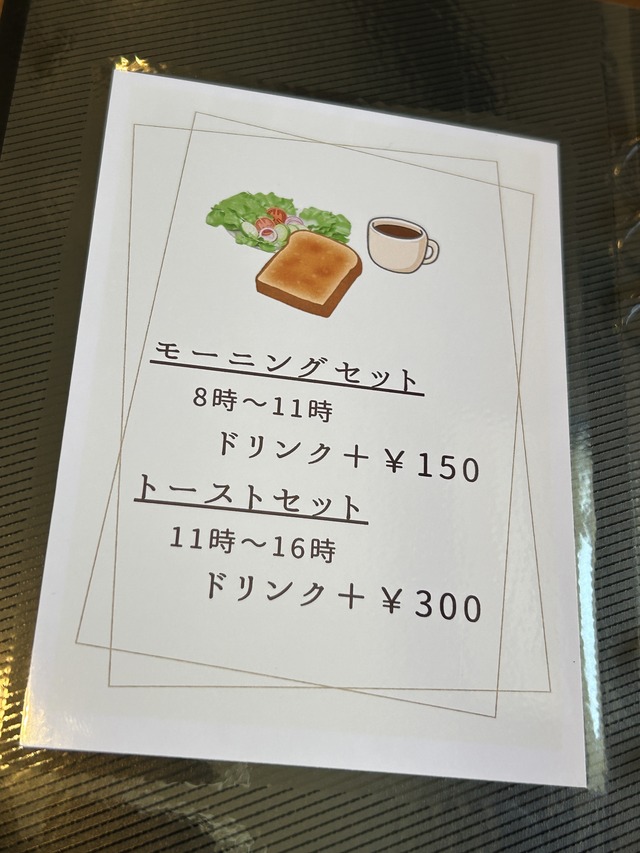 モーニングセット
8時～11時
ドリンク＋￥150
トーストセット
11時～16時
ドリンク＋￥300